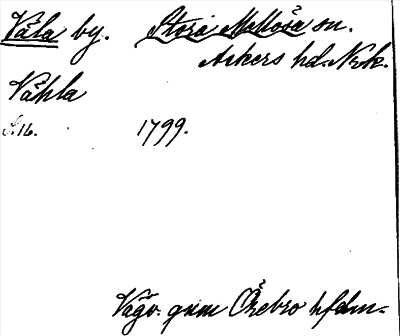 Våla by. Stora Mellösa sn.
Askers hd. Nrk.
Våhla
S. 16. 1799.
Vägv. gnm Örebro hfdm.